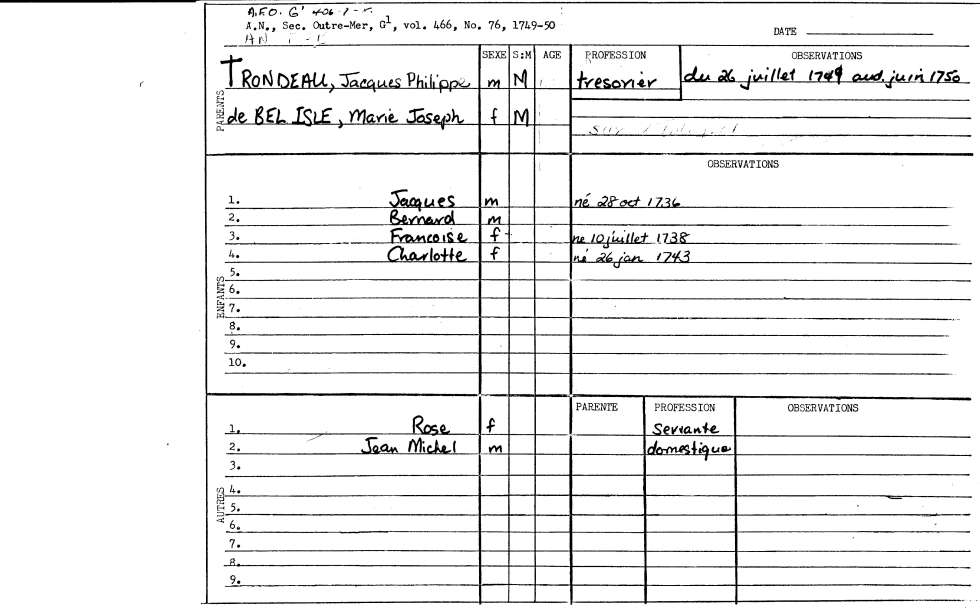 A.F.O. G¹ 406-1-
A.N., Sec. Outre-Mer, G¹, vol. 466, No. 76, 1749-50
AN
DATE
SEXE S:M AGE PROFESSION OBSERVATIONS
TRONDEAU, Jacques Philippe m M tresorier du 26 juillet 1749 aud. juin 1750
PARENTS
de BEL ISLE, Marie Joseph f M
OBSERVATIONS
1. Jacques m né 28 oct 1736
2. Bernard m
3. Francoise f ne 10 juillet 1738
4. Charlotte f né 26 jan 1743
5.
ENFANTS
6.
7.
8.
9.
10.
PARENTE PROFESSION OBSERVATIONS
1. Rose f servante
2. Jean Michel m domestique
3.
AUTRES
4.
5.
6.
7.
8.
9.